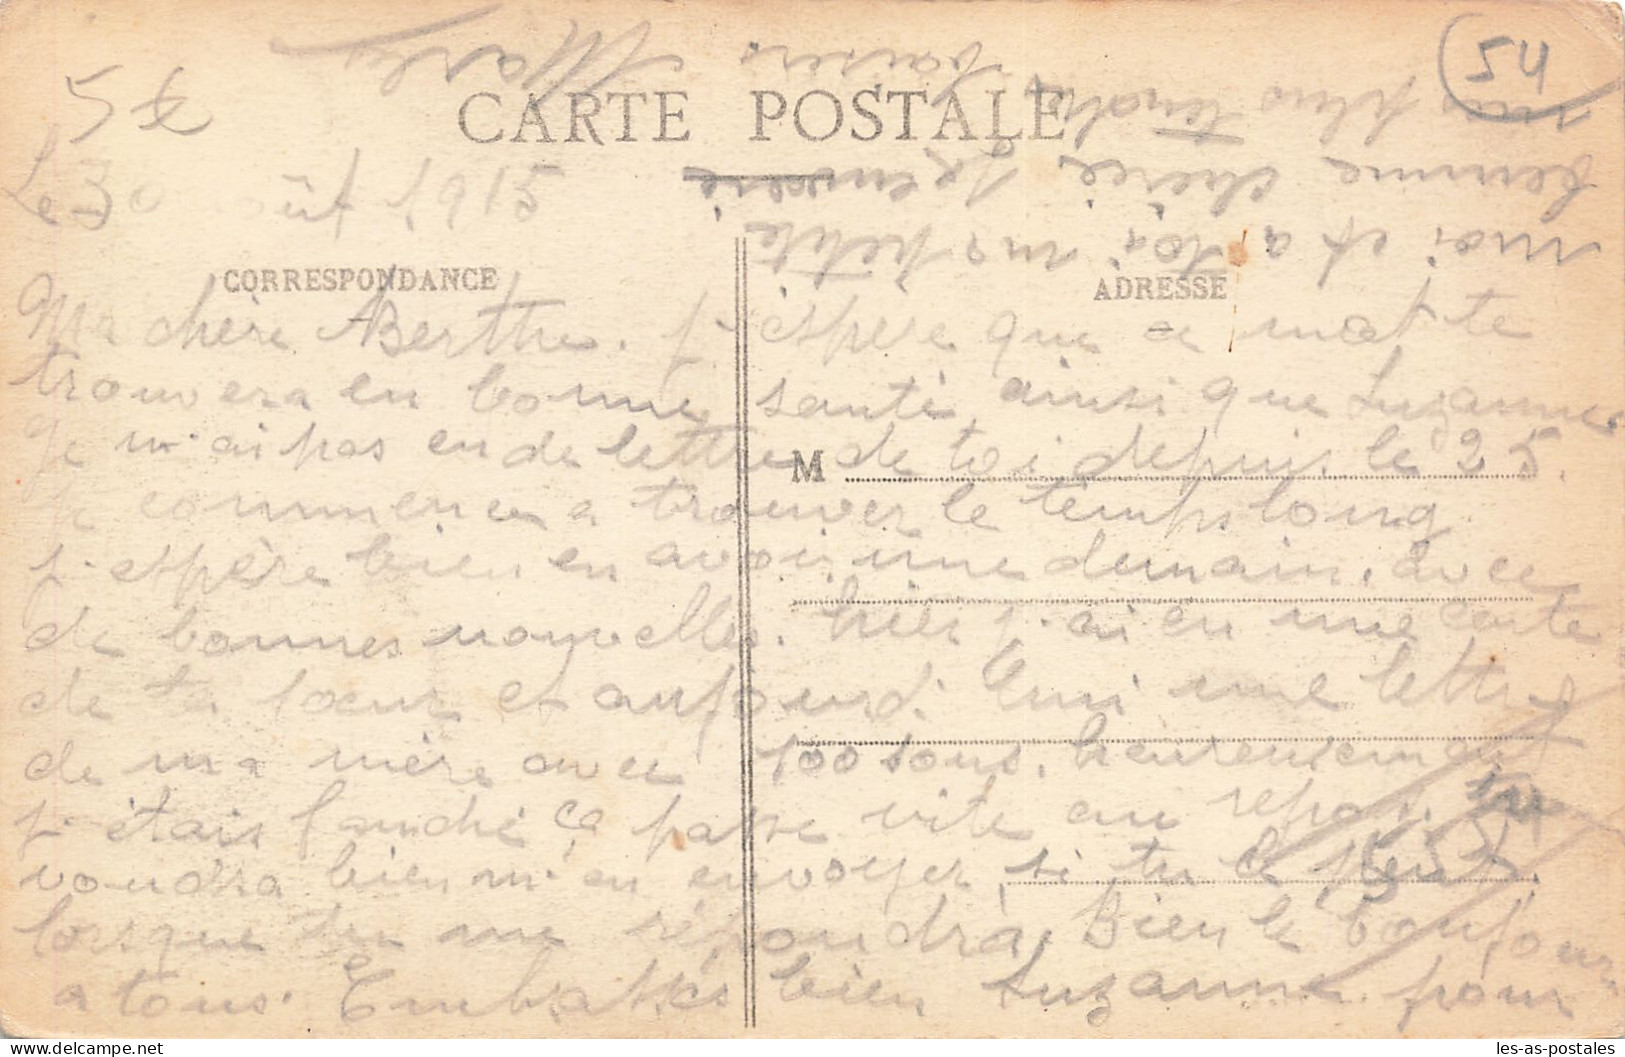 54
5 €
CARTE POSTALE
Le 30 août 1915
CORRESPONDANCE
ADRESSE
Ma chère Berthe. j'espère que ce mot te
trouvera en bonne santé, ainsi que Suzanne.
Je n'ai pas eu de lettre de toi depuis le 25.
M
je commence a trouver le temps long
j'espère bien en avoir une demain. avec
de bonnes nouvelles. hier j'ai eu une carte
de ta soeur et aujourd'hui une lettre
de ma mère avec 100 sous. heureusement
j'étais fauché ça passe vite au repos. tu
voudra bien m'en envoyer si tu le peux
lorsque tu me répondra. Bien le bonjour
a tous. Embasses bien Suzanne pour
moi et a toi ma petite
femme cherie je envoie
mes plus tendres
baisers
les-as-postales.com